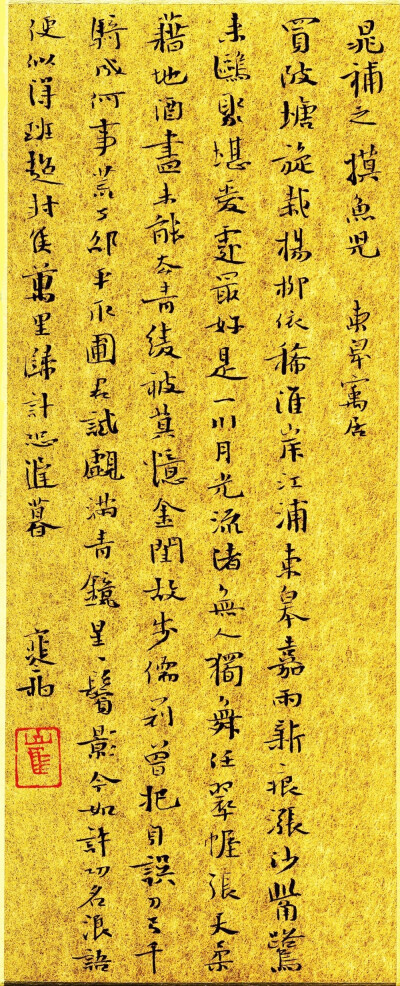 晁補之 摸魚兒 東皋寓居
買陂塘旋栽楊柳依稀淮岸江浦東皋嘉雨新痕漲沙觜鷺
来鷗聚堪爱處最好是一川月光流渚無人獨舞任翠幄張天柔
藉地酒盡未能去青綾被莫憶金閨故步儒冠曾把身誤刀弓千
騎成何事荒了邵平瓜圃君試覷滿青鏡星〻鬢影今如許功名浪語
便似得班超封侯萬里歸計恐遲暮